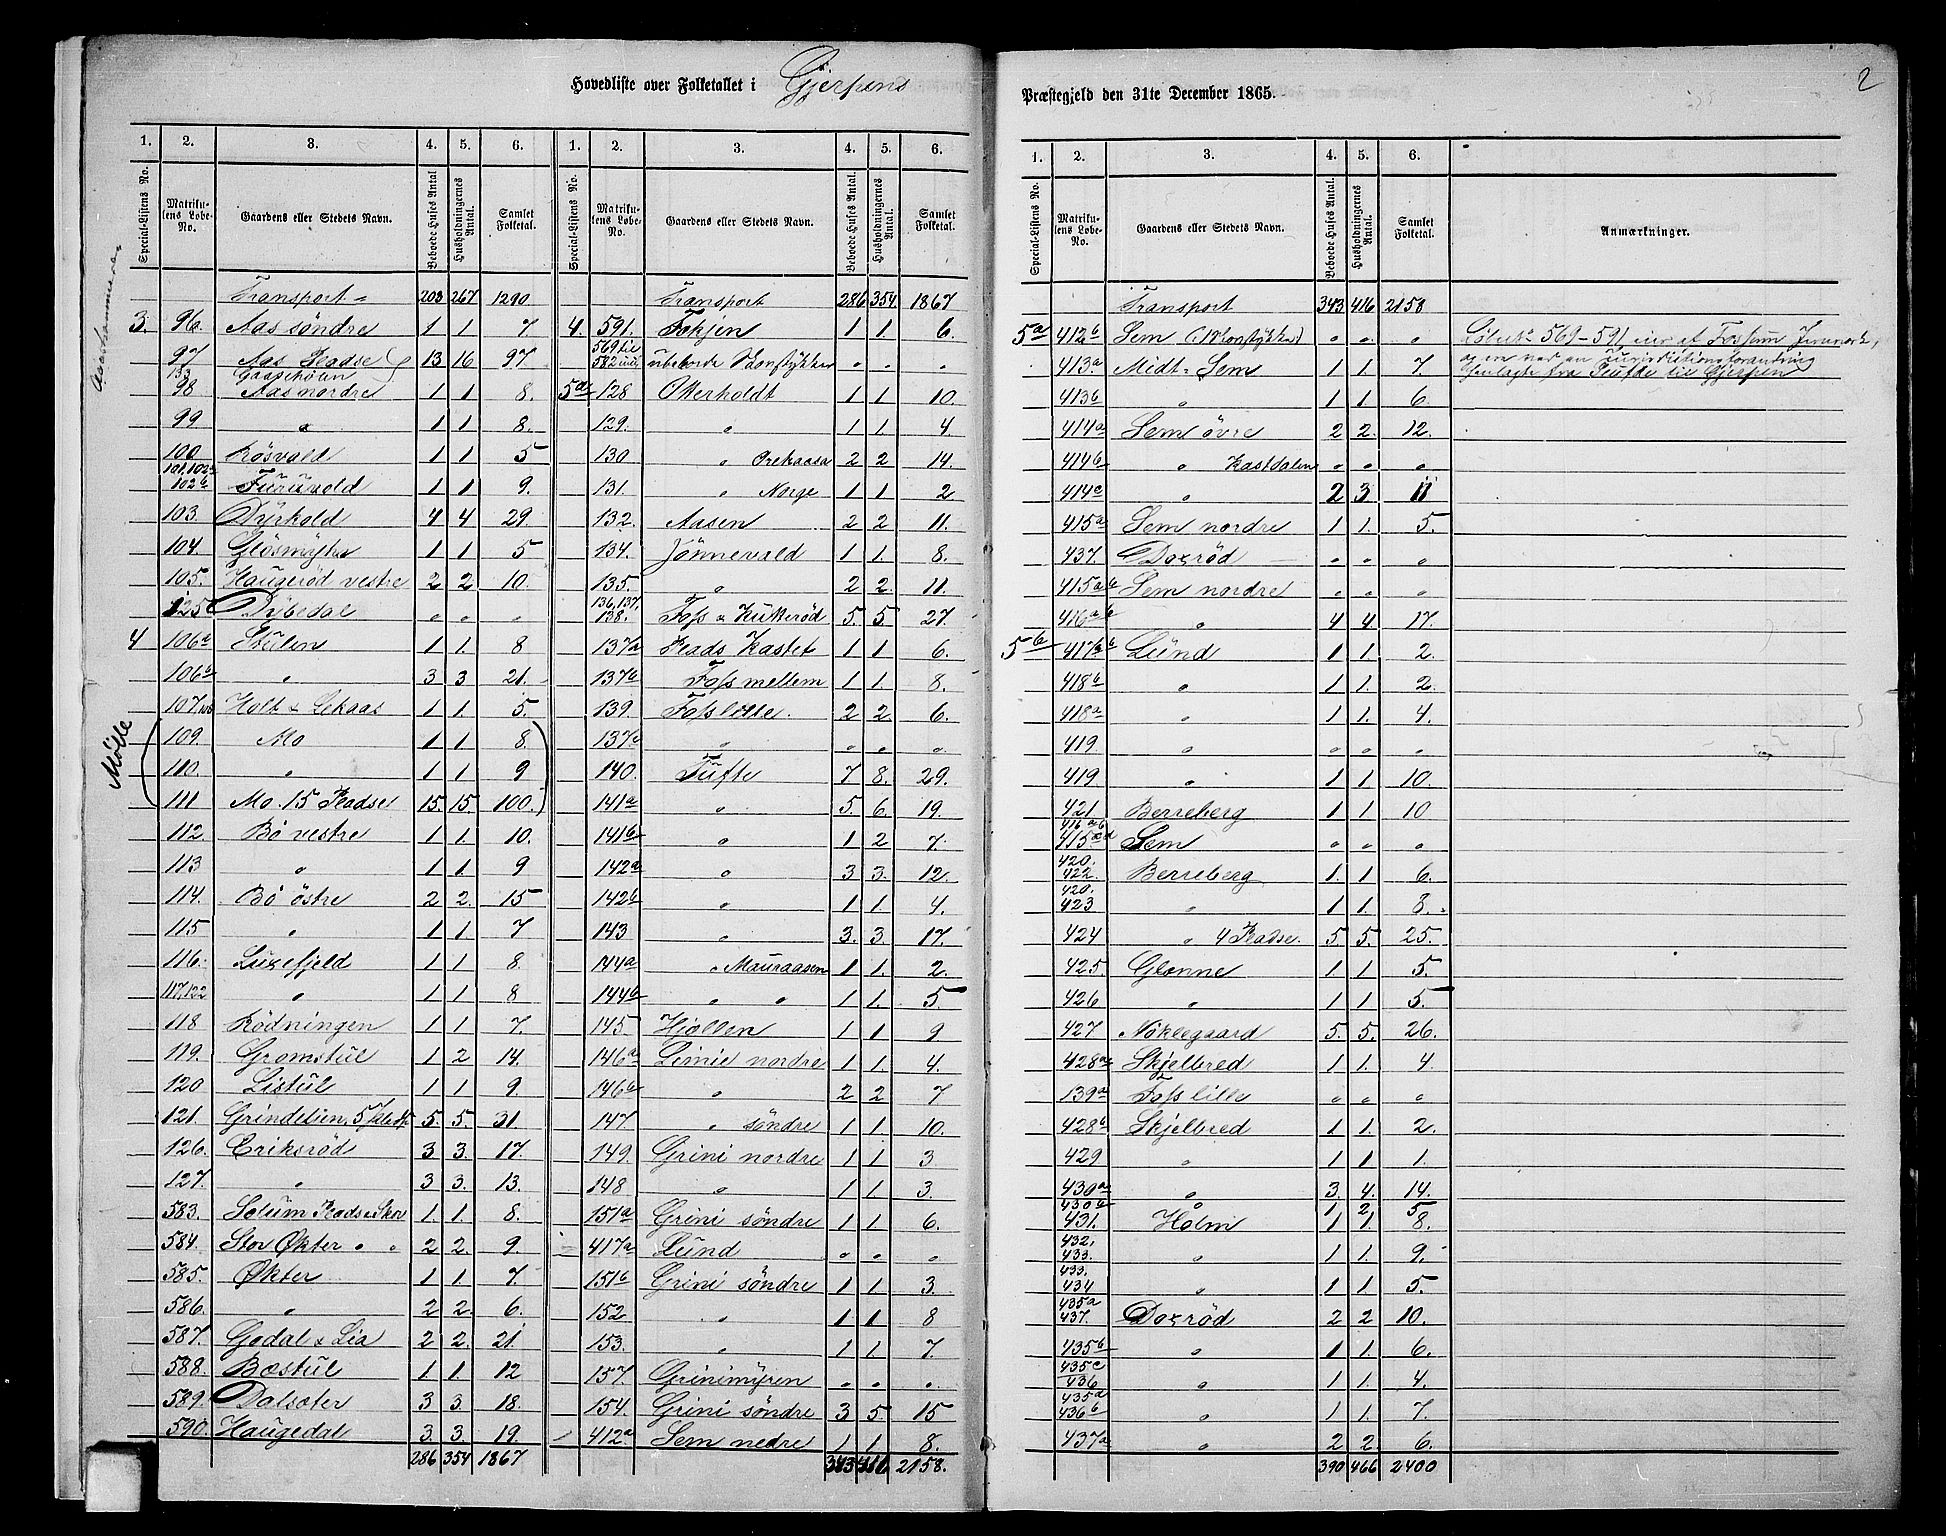 Hovedliste over Folketallet i Gjerpens
1. 2. 3. 4. 5. 6. 1. 2. 3. 4. 5. 6.
Special-Listens No. Matrikulens Løbe-No. Gaardens eller Stedets Navn. Beboede Huses Antal Husholdningernes Antal. Samlet Folketal. Special-Listens No. Matrikulens Løbe-No. Gaardens eller Stedets Navn. Beboede Huses Antal. Husholdningernes Antal. Samlet Folketal.
Transport 203 267 1290
3. 96. Aas søndre 1 1 7
97 133 Aas Pladse Gaasehölen 13 16 97
98 Aas nordre 1 1 8.
99 " 1 1 8.
100 Rösvald 1 1 5
101, 102a 102b Furuvold 1 1 9.
103. Dyrkold 4 4 29.
104. Glösmyhr 1 1 5
105. Haugeröd vestre 2 2 10.
125 Dybedal " " "
4 106a Stulen 1 1. 8
106b " 3 3 21.
107 Holt & Lekaas 1 1. 5.
Mölle
109. Mo 1 1 8.
110. " 1 1 9
111 Mo. 15 Pladse 15. 15. 100.
112. Bö vestre 1 1. 10.
113 " 1 1. 9
114. Bö östre 2 2. 15
115 " 1 1. 7
116. Luxefjeld 1 1 8.
117, 122 " 1 1 8
118 Rödningen 1 1 7.
119. Gromstul 1 2 14.
120 Listul 1 1 9.
121. Grindelien, 5 Pladse 5. 5. 31
126. Eriksröd 3 3. 17.
127. " 3 3. 13.
583. Solum Pads. Skov 1. 1. 8.
584. Stor Økter " " 2 2. 9.
585. Økter 1 1. 7.
586. " 2 2. 6.
587. Godal & Lia 2 2. 21.
588. Bæstul 1 1 12
589. Dalsæter 3 3. 18.
590. Haugedal 3. 3. 19.
286 354 1867
Transport 286 354. 1867
4. 591. Fokjen 1 1 6.
569 til 582 incl. ubeboede Skovstykker " " "
5a 128 Okerholdt 1 1. 10.
129. " 1 1. 4
130 " Orekaasa 2 2 14.
131. " Norge 1 1 2
132. Aasen 2 2 11.
134. Jönnevald 1 1. 8.
135. " 2 2 11.
136, 137. 138. Foss & Kukeröd 5. 5. 27.
137a Plads Kastet 1 1 6.
137b Foss mellem 1 1. 8.
139. Foss lille. 2 2 6.
137a " " " "
140. Tufte 7 8. 29.
141a " 5. 6. 19.
141b " 1 2 7.
142a " 3 3. 12.
142b " 1 1. 4.
143 " 3. 3. 17.
144a " Mauraasen 1 1. 2.
144b " " 1 1. 5
145 Hjollen 1 1 9
146a Limie nordre 1 1. 4.
146b " 2 2 7
147 " söndre 1 1. 10.
149. Grini nordre 1 1. 3
148 " 1 1. 3.
151a Grini söndre 1 1 6.
417a Lund " " "
151b Grini söndre 1 1 3.
152 " 1 1 8
153. " 1 1. 7.
157. Grinimyren " " "
154. Grini söndre 3 5. 15
412a Sem nedre 1 1. 8.
343 416 2158.
Præstegjeld den 31te December 1865.
2
1. 2. 3. 4. 5. 6.
Special-Listens No. Matrikulens Løbe-No. Gaardens eller Stedets Navn. Beboede Huses Antal. Husholdningernes Antal. Samlet Folketal. Anmærkninger.
Transport 343 416 2158
5a 412b Sem (Skovstykke) " " "
413a Midt-Sem 1 1 7
413b " 1 1 6.
414a Sem övre 2 2. 12.
414b " Kastdalen " " "
414c " 2 3 11
415a Sem nordre 1 1. 5.
437. Doxröd " " "
415ab Sem nordre " " "
416ab " 4 4 17.
5b 417b Lund 1 1. 2.
418b " 1 1. 2.
418a " 1 1. 4.
419. " " " "
419 " 1 1 10.
421 Berreberg 1 1. 10
416ab 415cd Sem " " "
420. 422. Berreberg 1. 1. 6.
420. 423 " 1 1. 8.
424 " 4 Pladse. 5. 5. 25.
425 Glenne 1 1 5.
426 " 1 1 5.
427 Nöklegaard 5. 5. 26.
428a Skjelbred 1 1. 4.
139a Foss lille " " "
428b Skjelbred 1 1. 2.
429 " 1 1 1.
430a " 3. 4. 14.
430b " 1 2 5
431. Holm 1 1 8.
432, 433. " 1 1. 9.
433. 434 " 1 1 5.
435a 437. Doxröd 2 2 10.
435b " 1 1. 6.
435c 436 " 1 1. 4.
435a 436b " 1 1. 7.
437a " 2 2. 6.
390 466 2400
Löbe No 569-591 er af Fossum Jernværk,
og en ved en Jurisdictionsforandring
henlagte fra Slufde til Gjerpen